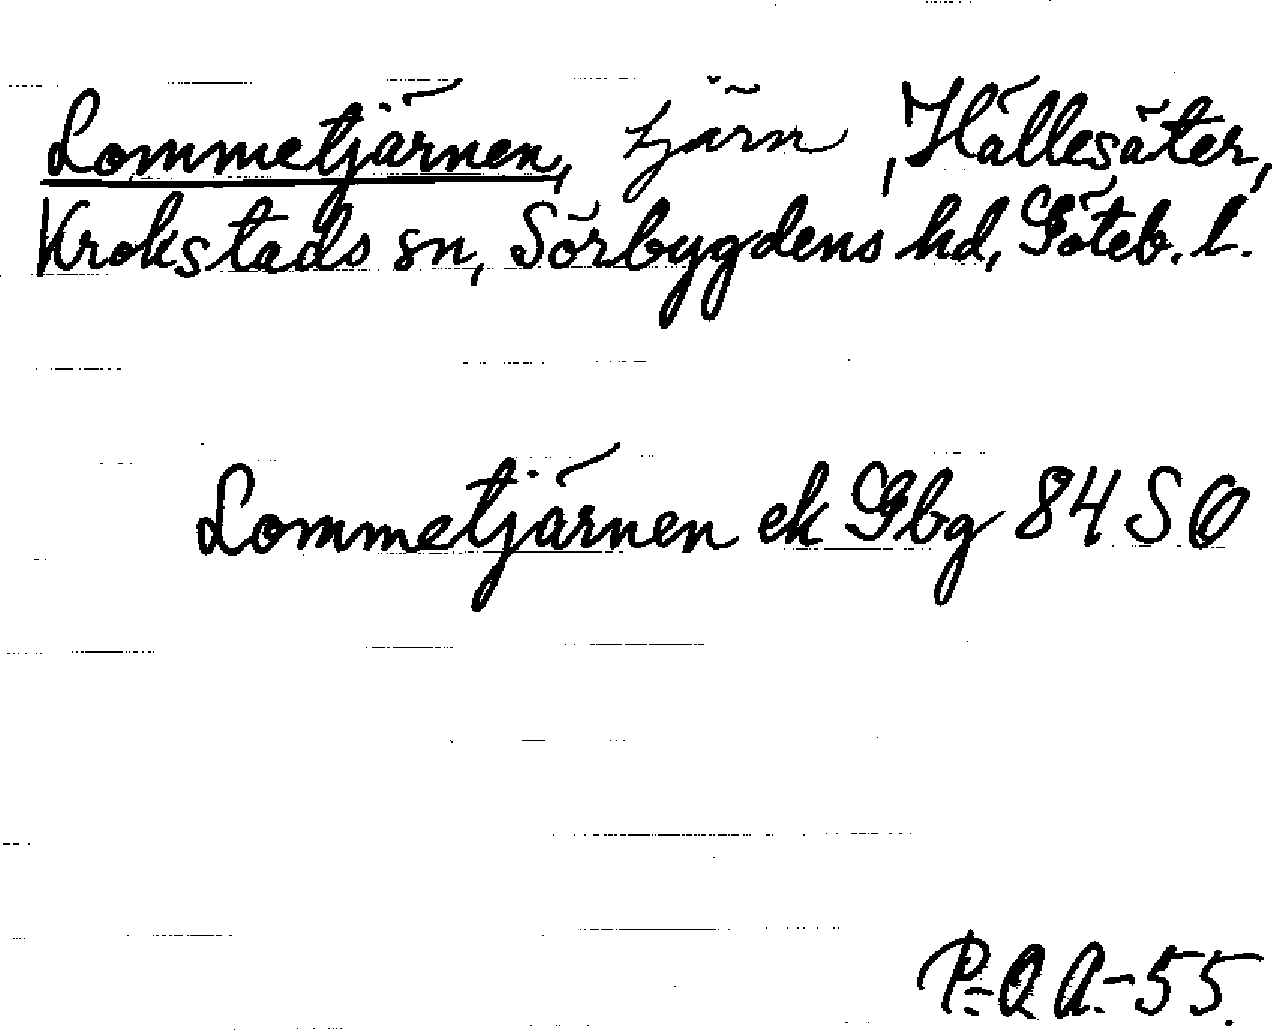 Lommetjärnen, tjärn, Hällesäter,
Krokstads sn, Sörbygdens hd, Göteb. l.
Lommetjärnen ek Gbg 84 S O
P-O A-55.